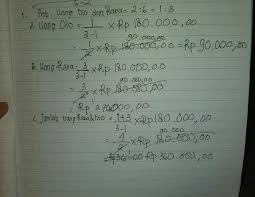 1. Perb. Uang Dio dan Rara = 2:6 = 1:3
A. Uang Dio = 1/3-1 x Rp 180.000,00
= 1/2 x Rp 180.000,00 = Rp 90.000,00
90.000,00
B. Uang Rara = 3/3-1 x Rp 180.000,00
90.000,00
= 3/2 x Rp 180.000,00
= Rp 270.000,00
C. Jumlah uang Rara & Dio = 1+3/3-1 x Rp 180.000,00
90.000
= 4/2 x Rp 180.000,00
= Rp 360.000,00